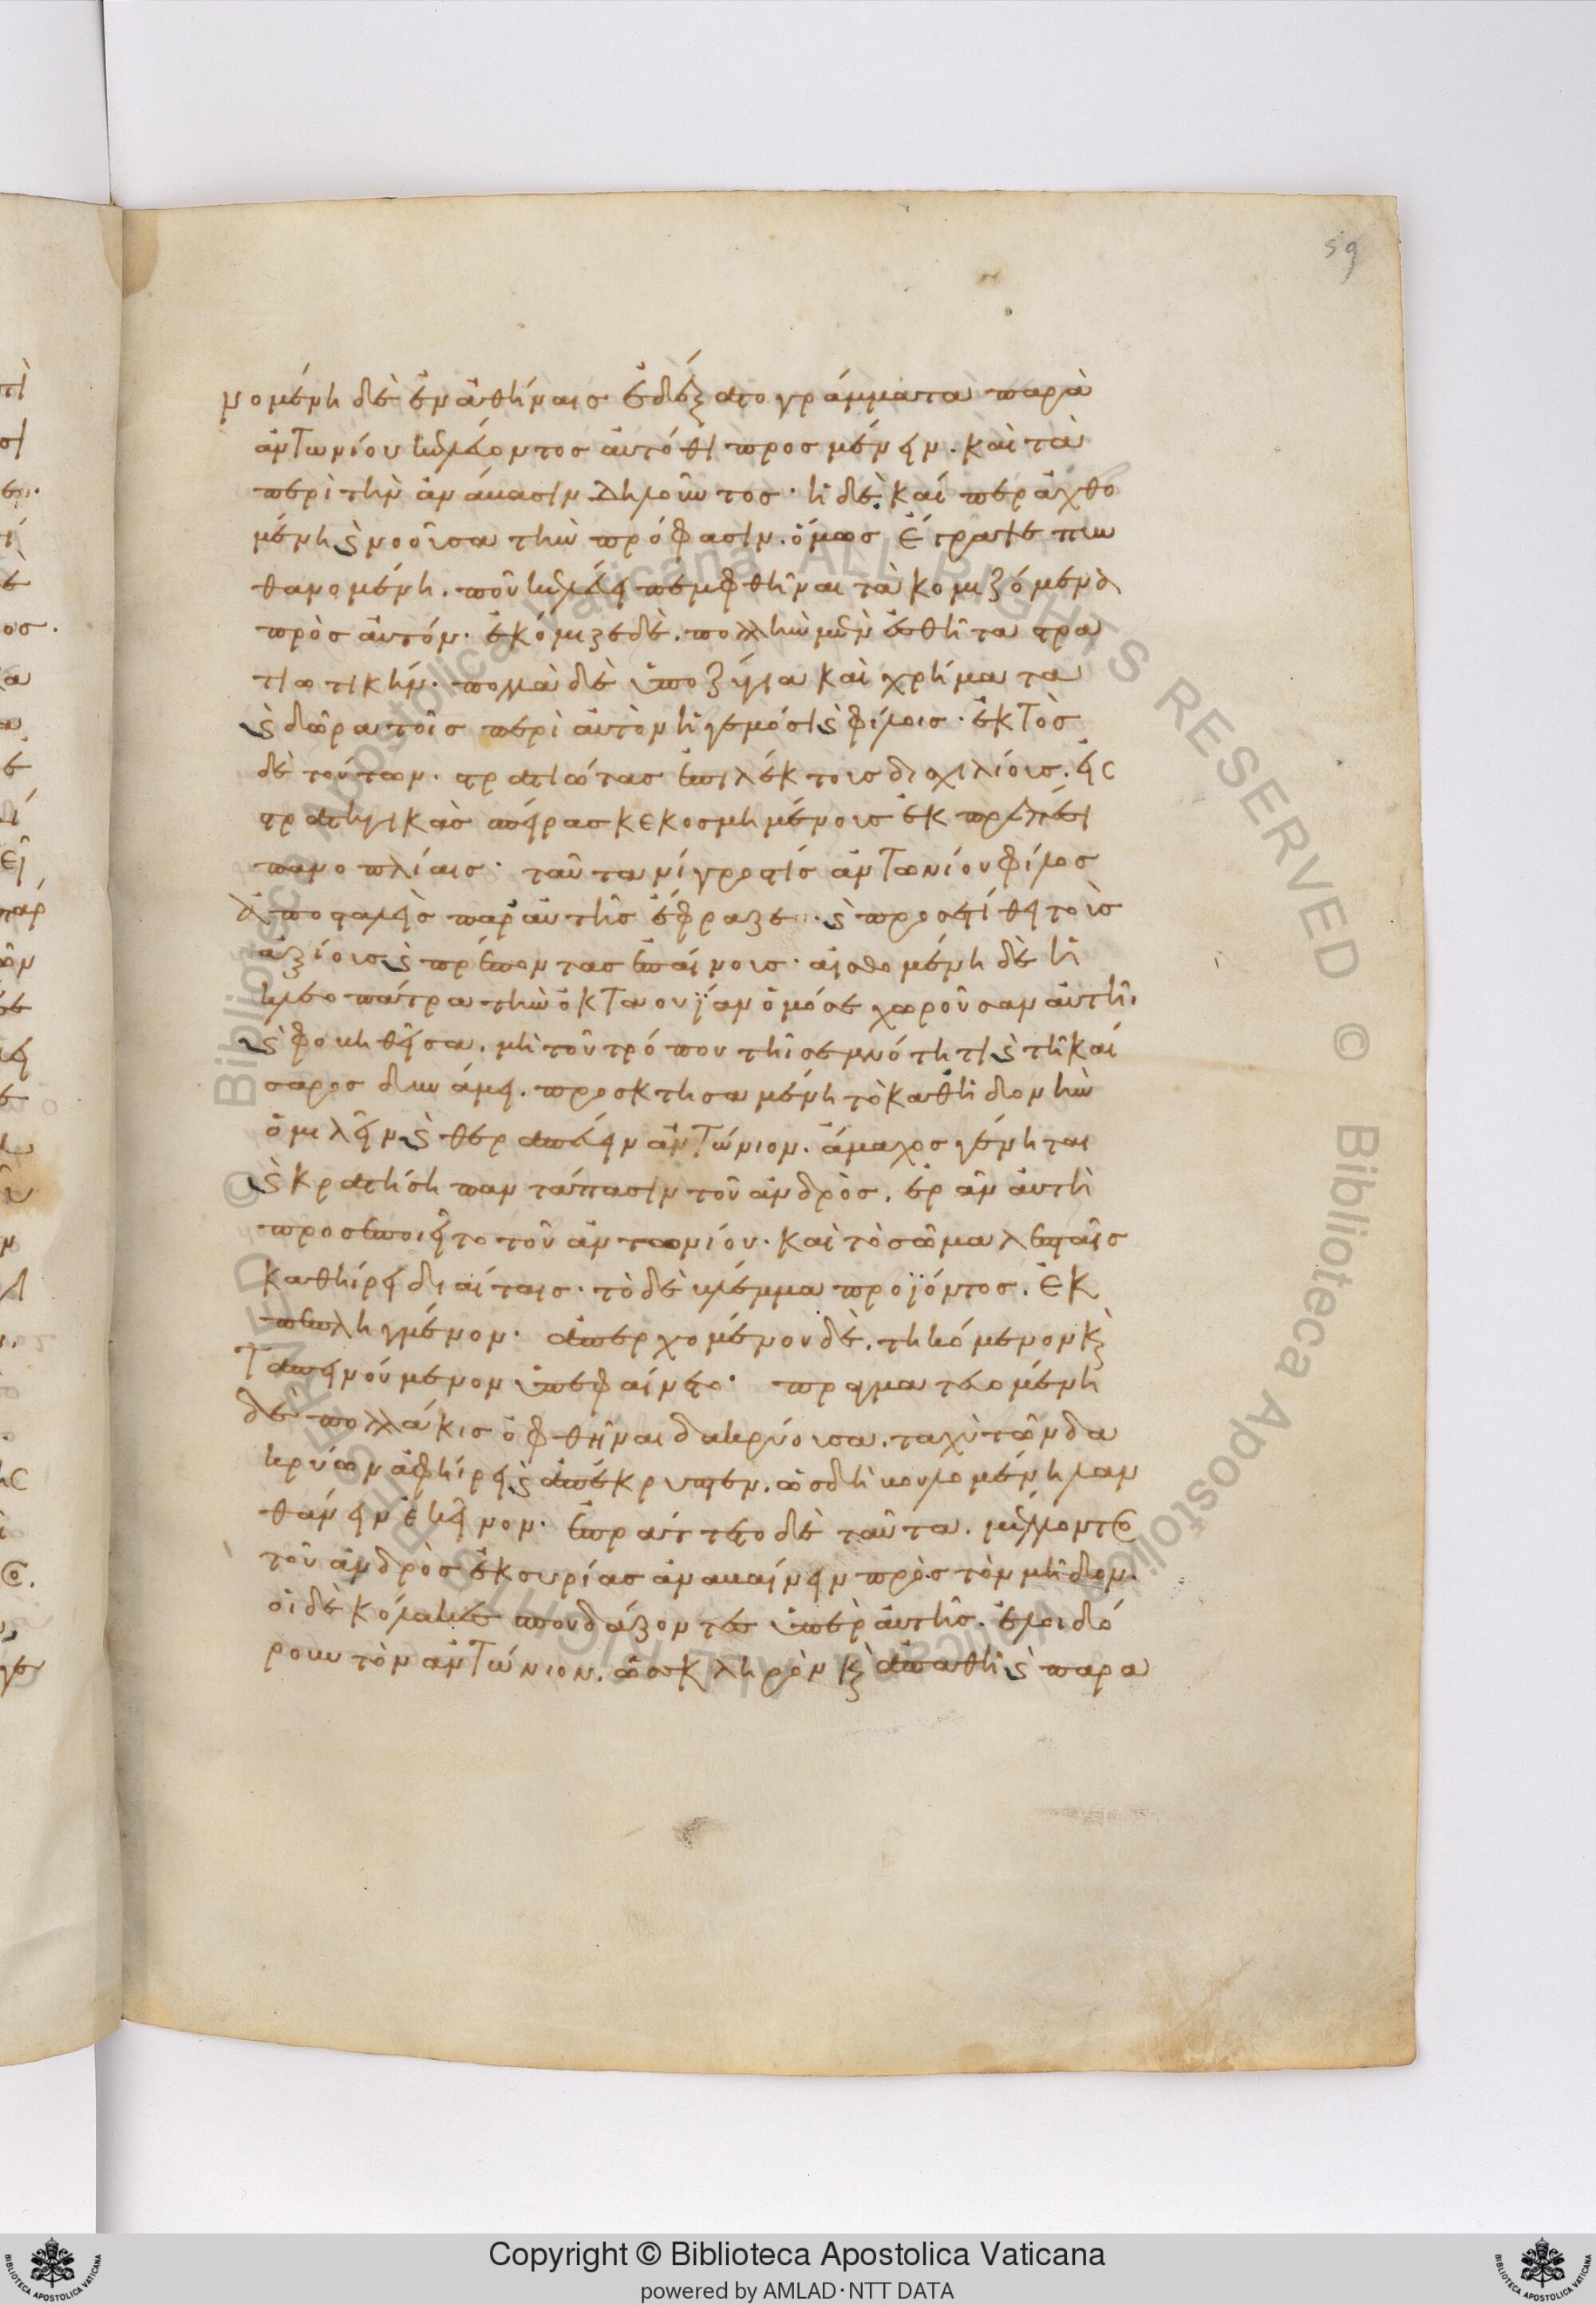 59
νομένη δὲ ἐν ἀθήναις ἐδέξατο γράμματα παρὰ
ἀντωνίου κελεύοντος αὐτόθι προσμένειν. καὶ τὰ
περὶ τὴν ἀνάβασιν δηλοῦντος· ἡ δὲ καί περ ἀχθο
μένη ϗ νοοῦσα τὴν πρόφασιν. ὅμως ἔγραψε πυν
θανομένη. ποῦ κελεύει πεμφθῆναι τὰ κομιζόμενα
πρὸς αὐτόν· ἐκόμιζε δὲ. πολλὴν μὲν ἐσθῆτα στρα
τιωτικήν· πολλὰ δὲ ὑποζύγια καὶ χρήματα
ϗ δῶρα τοῖς περὶ αὐτὸν ἡγεμόσι ϗ φίλοις· ἐκτὸς
δὲ τούτων. στρατιώτας ἐπιλέκτους δισχιλίους. εἰς
στρατηγικὰς σπείρας κεκοσμημένους ἐκπρεπέσι
πανοπλίαις· ταῦτα νίγρος τίς ἀντωνίου φίλος
ἀποσταλεὶς παρ' αὐτῆς ἔφραζε. ϗ προσετίθει τοὺς
ἀξίους ϗ πρέποντας ἐπαίνους· αἰσθομένη δὲ ἡ
κλεοπάτρα τὴν ὀκταουΐαν ὁμόσε χωροῦσαν αὐτῆι.
ϗ φοβηθεῖσα. μὴ τοῦ τρόπου τῆι σεμνότητι ϗ τῆ καί
σαρος δυνάμει. προσκτησαμένη τὸ καθ' ἡδονὴν
ὁμιλεῖν ϗ θεραπεύειν ἀντώνιον. ἄμαχος γένηται
ϗ κρατήση παντάπασιν τοῦ ἀνδρός. ἐρᾶν αὐτὴ
προσεποιεῖτο τοῦ ἀντωνίου· καὶ τὸ σῶμα λεπταῖς
καθήρει διαίταις· τὸ δὲ βλέμμα προϊόντος. ἐκ
πεπληγμένον· ἀπερχομένου δὲ. τηκόμενον κ(αὶ)
ταπεινούμενον ὑπεφαίνετο· πραγματευομένη
δὲ πολλάκις ὀφθῆναι δακρύουσα. ταχὺ τῶν δα
κρύων ἀφήρει ϗ ἀπέκρυπτεν. ὡς δὴ βουλομένη λαν
θάνειν ἐκεῖνον· ἐπράττετο δὲ ταῦτα. μέλλοντος
τοῦ ἀνδρὸς ἐκ συρίας ἀναβαίνειν πρὸς τὸν μῆδον.
οἱ δὲ κόλακες σπουδάζοντες ὑπὲρ αὐτῆς. ἐλοιδό
ρουν τὸν ἀντώνιον. ὡς σκληρὸν κ(αὶ) ἀπαθῆ ϗ παρα
Copyright © Biblioteca Apostolica Vaticana
powered by AMLAD·NTT DATA